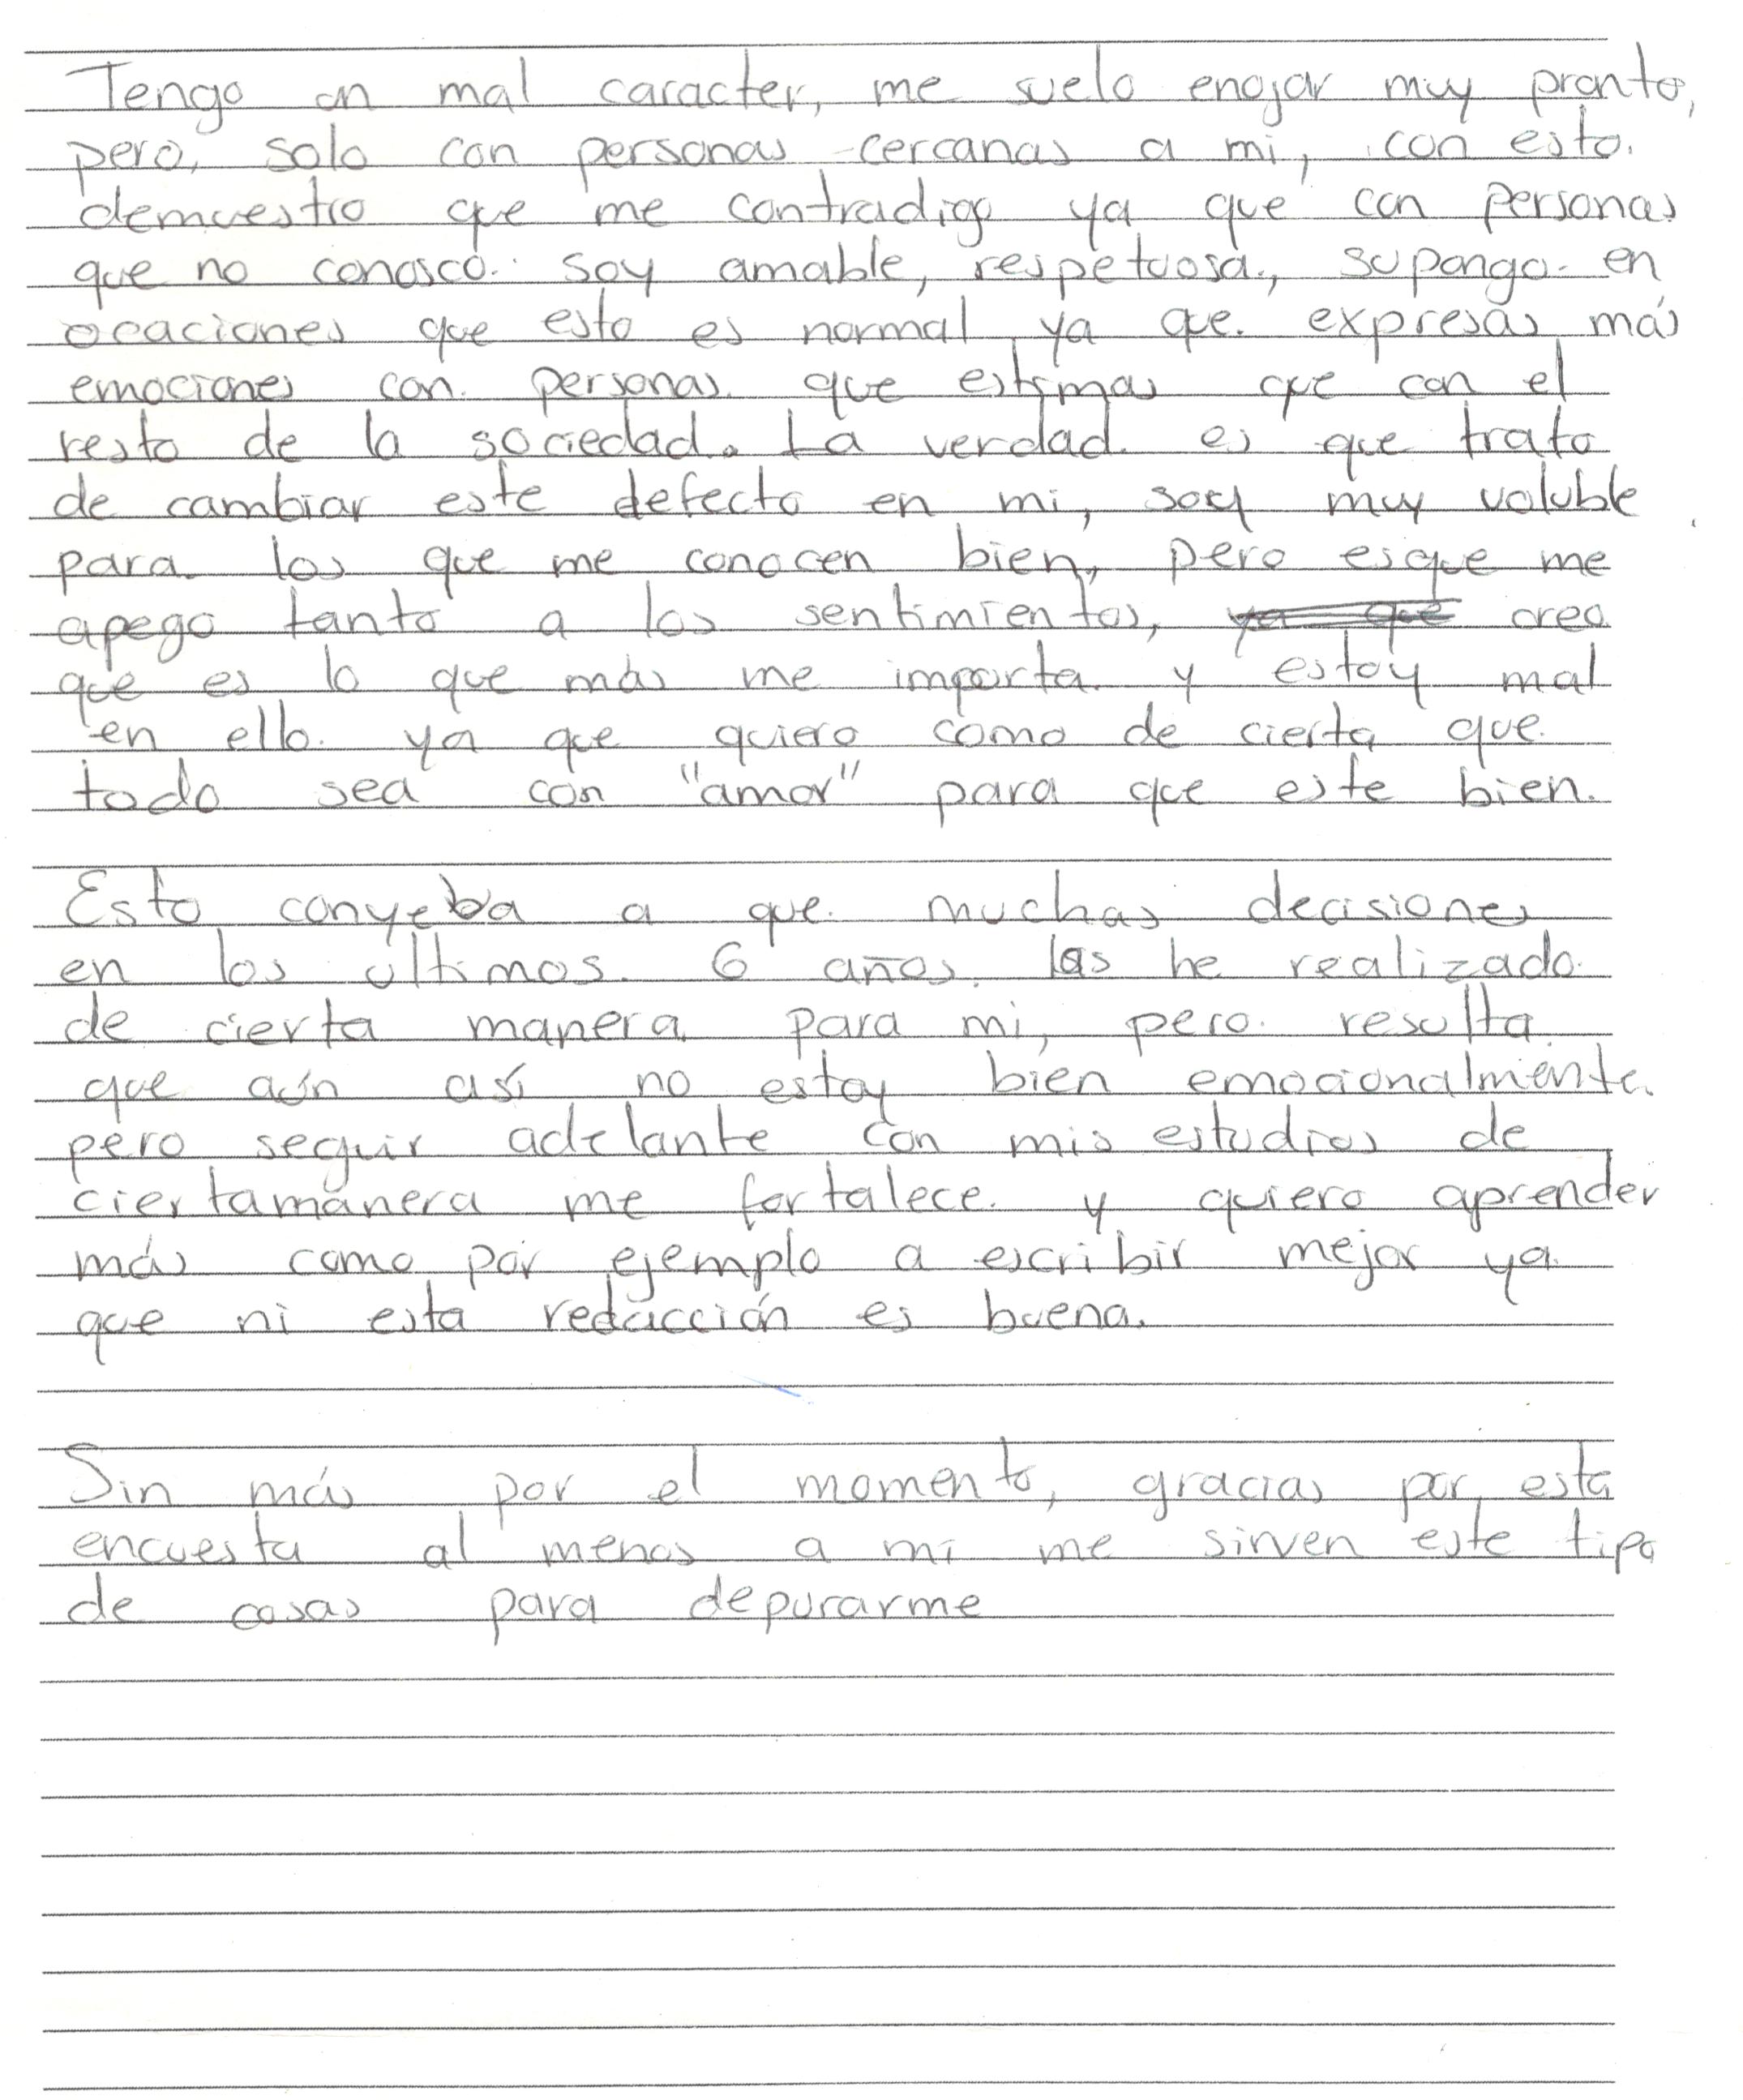 Tengo un mal caracter, me suelo enojar muy pronto,
pero, solo con personas cercanas a mi, con esto.
demuestro que me contradigo ya que con personas
que no conosco. soy amable, respetuosa, supongo en
ocaciones que esto es normal ya que expresas más
emociones con personas que estimas que con el
resto de la sociedad. La verdad es que trato
de cambiar este defecto en mi, soy muy voluble
para los que me conocen bien, pero esque me
apego tanto a los sentimientos, ya que creo
que es lo que más me importa y estoy mal
en ello. ya que quiero como de cierta que
todo sea con "amor" para que este bien.
Esto conyeba a que muchas decisiones
en los ultimos 6 años, las he realizado
de cierta manera para mi, pero resulta
que aún así no estoy bien emocionalmente.
pero seguir adelante con mis estudios de
ciertamanera me fortalece. y quiero aprender
más como por ejemplo a escribir mejor ya
que ni esta redacción es buena.
Sin más por el momento, gracias por esta
encuesta al menos a mí me sirven este tipo
de cosas para depurarme